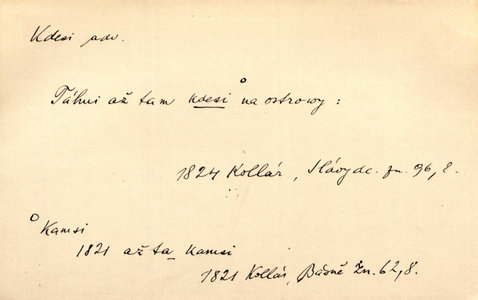 Kdesi adv.
Táhni až tam kdesi na ostrowy :
1824 Kollár, Slávy dc. zn. 96, 8.
Kamsi
1821 až ta kamsi
1821 Kollár, Básně Zn. 62, 8.